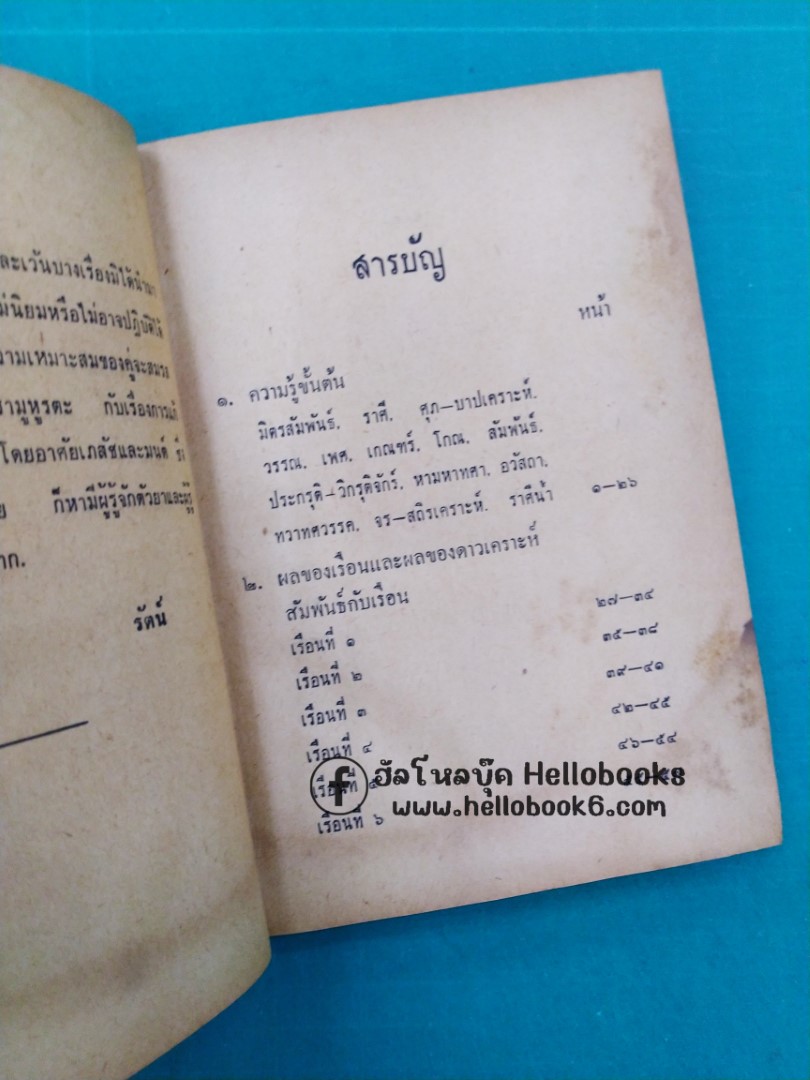 ละเว้นบางเรื่องมิได้นำมา
ม่นิยมหรือไม่อาจปฏิบัติได้
วามเหมาะสมของคู่จะสมรส
ามูหูรตะ กับเรื่องการแก้
โดยอาศัยเภสัชและมนต์
ย ก็หามีผู้รู้จักตัวยาและ
าก.
รัตน์
สารบัญ
หน้า
๑. ความรู้ขั้นต้น
มิตรสัมพันธ์. ราศี. ศุภ—บาปเคราะห์.
วรรณ. เพศ. เกณฑร์. โกณ. สัมพันธ์.
ประกรุติ—วิกรุติจักร์. หามหาทศา. อวัสถา.
ทวาทศวรรค. จร—สถิรเคราะห์. ราศีน้ำ ๑—๒๖
๒. ผลของเรือนและผลของดาวเคราะห์
สัมพันธ์กับเรือน ๒๗—๓๔
เรือนที่ ๑ ๓๕—๓๘
เรือนที่ ๒ ๓๙—๔๑
เรือนที่ ๓ ๔๒—๔๕
เรือนที่ ๔ ๔๖—๕๔
เรือนที่ ๕
เรือนที่ ๖
f ฮัลโหลบุ๊ค Hellobooks
www.hellobook6.com